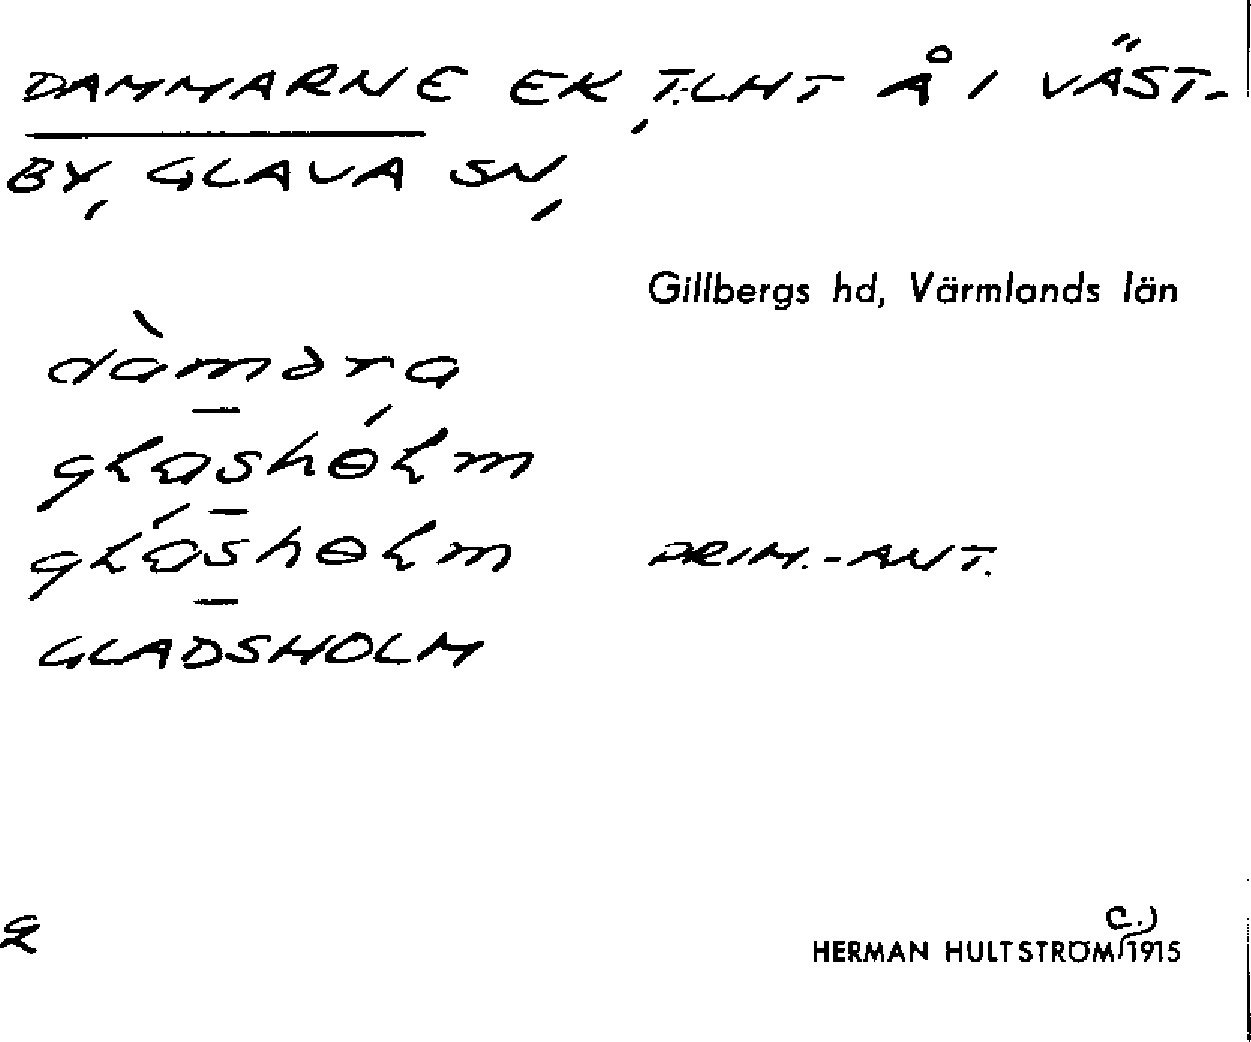 DAMMARNE EK, T.LHT Å I VÄST-
BY, GLAVA SN,
Gillbergs hd, Värmlands län
dàməra
glashólm
glásholm PRIM.-ANT.
GLADSHOLM
C.)
HERMAN HULTSTRÖM 1915